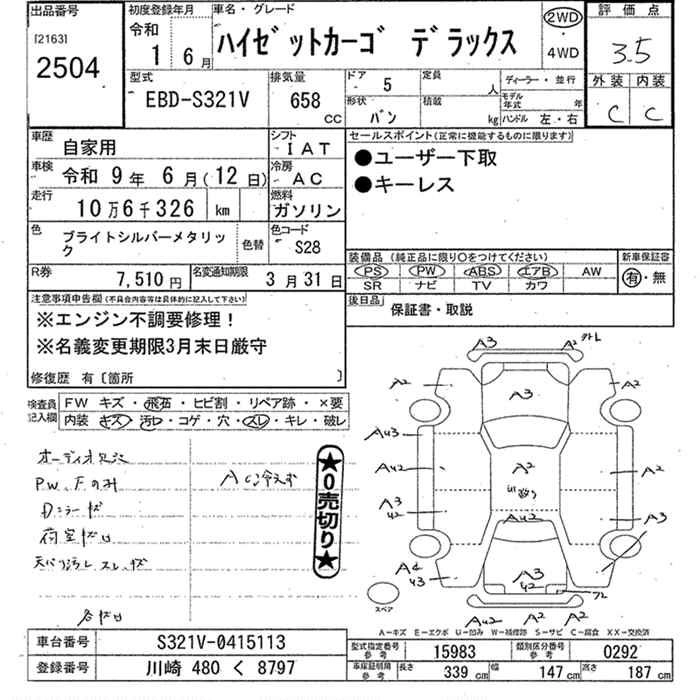 出品番号 初度登録年月 車名・グレード 評価点
[2163] 令和 ハイゼットカーゴ デラックス 2WD 3.5
2504 1 6月 ・4WD
型式 排気量 ドア 5 定員 人 ディーラー・並行 外装 内装
EBD-S321V 658 CC 形状 バン 積載 kg モデル年式 年 C C
ハンドル 左・右
車歴 自家用 シフト IAT セールスポイント(正常に機能するものに限ります)
車検 令和 9年 6月(12日) 冷房 AC ●ユーザー下取
走行 10万6千326 km 燃料 ガソリン ●キーレス
色 ブライトシルバーメタリック 色替 色コード S28
装備品(純正品に限り○をつけてください) 新車保証書
PS PW ABS エアB AW 有・無
SR ナビ TV カワ
R券 7,510円 名変通知期限 3月31日
後日品 保証書・取説
注意事項申告欄(不具合内容等は具体的に記入して下さい)
※エンジン不調要修理!
※名義変更期限3月末日厳守
修復歴 有〔箇所 〕
検査員記入欄 FW キズ・飛石・ヒビ割・リペア跡・×要
内装 キズ・汚レ・コゲ・穴・スレ・キレ・破レ
オーディオ欠品
PW、Fのみ
ACは冷えず
★0売切り★
A3 A2
A2 A3 A2
AU3
AU2 A2 A2
A3 AU2 A3
A3
AU2 A2 A2
スペア
A-キズ E-エクボ U-凹み W-補修跡 S-サビ C-腐食 XX-交換済
車台番号 S321V-0415113 型式指定番号 参考 15983 類別区分番号 参考 0292
登録番号 川崎 480 く 8797 車庫証明用 参考 長さ 339 cm 幅 147 cm 高さ 187 cm